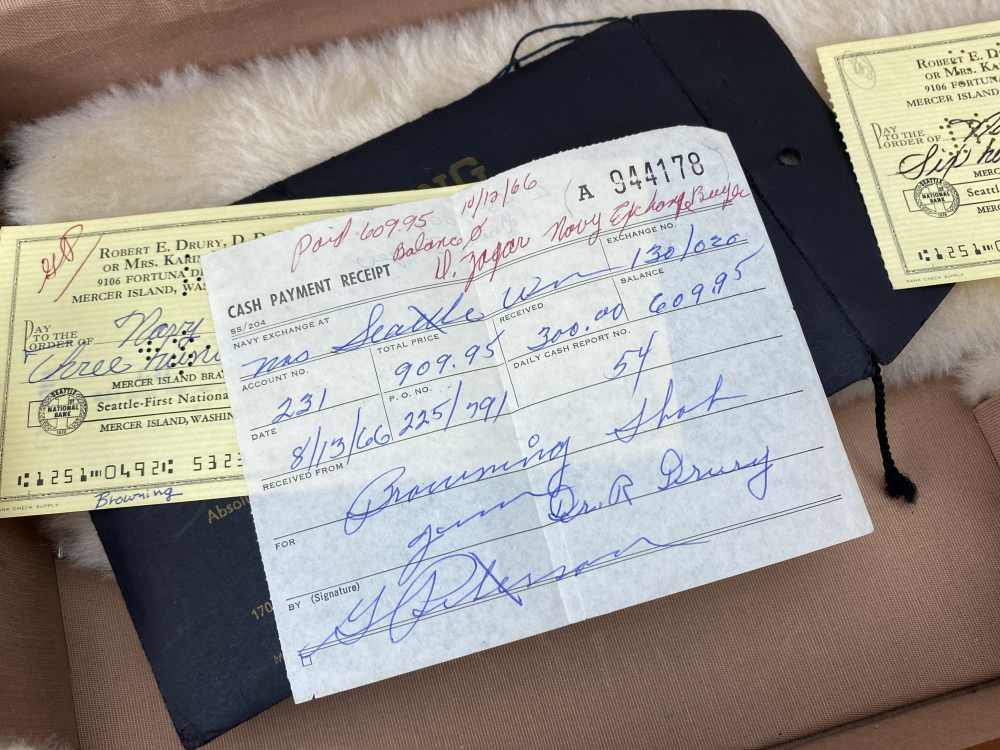 ROBERT E. DRURY, D.D.
OR MRS.
9106 FORTUNA DR
MERCER ISLAND, WAS
PAY
TO THE
ORDER OF
Navy
Three hund
MERCER ISLAND BRA
Seattle-First National
MERCER ISLAND, WASHING
SEATTLE
FIRST
NATIONAL
BANK
1251 0492 5323
BANK CHECK SUPPLY
Browning
NG
Absol
170
A 944178
Paid 609.95 10/12/66
Balance 0
D. Zagar Navy Exchange Buyer
CASH PAYMENT RECEIPT
SS/204
NAVY EXCHANGE AT
EXCHANGE NO.
NAS Seattle Wn 130/020
ACCOUNT NO.
TOTAL PRICE
RECEIVED
BALANCE
231
909.95
300.00
609.95
DATE
P.O. NO.
DAILY CASH REPORT NO.
8/13/66
225/791
54
RECEIVED FROM
Browning Shot
FOR
gun Dr. R Drury
BY (Signature)
G Peterson
ROBERT E. D
OR MRS. KA
9106 FORTUNA
MERCER ISLAND
PAY
TO THE
ORDER OF
Six hu
MERC
Seattle
SEATTLE
FIRST
NATIONAL
BANK
MERCER
1251
BANK CHECK SUPPLY